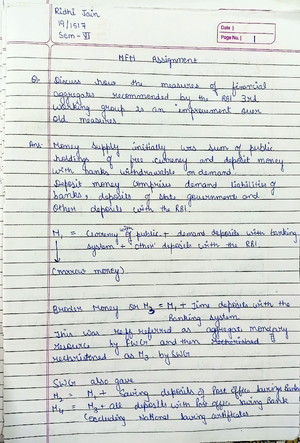 Ridhi Jain
19/1517
Sem - VI
Date
Page No. 1
MFM Assignment
Q. Discuss how the measures of financial
aggregates recommended by the RBI 3rd
working group is an improvement over
old measures.
Ans. Money Supply initially was sum of public
holdings of free currency and deposit money
with banks withdrawable on demand.
Deposit money comprises demand liabilities of
banks, deposits of state government and
Other deposits with the RBI.
M1 = Currency with public + demand deposits with banking
system + other deposits with the RBI.
(narrow money)
Broder Money or M3 = M1 + Time deposits with the
Banking system
This was referred as aggregate monetary
resource by FWG and then
rechristened as M3 by SWG
SWG also gave
M2 = M1 + Saving deposits of Post office savings Bank
M4 = M3 + all deposits with Post office Saving Bank
(excluding National saving certificates)